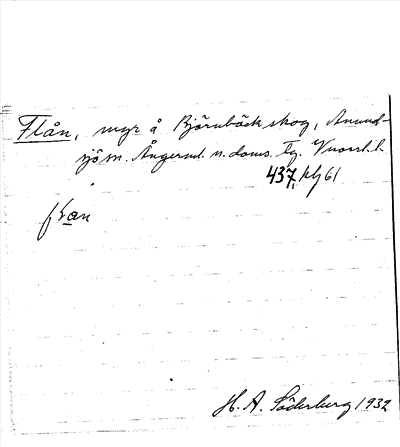 Flån, myr å Björnbäck skog, Anund-
sjö sn. Ångerml. n. doms. Tg.
437, klj 61
flan
H. A. Söderburg 1932